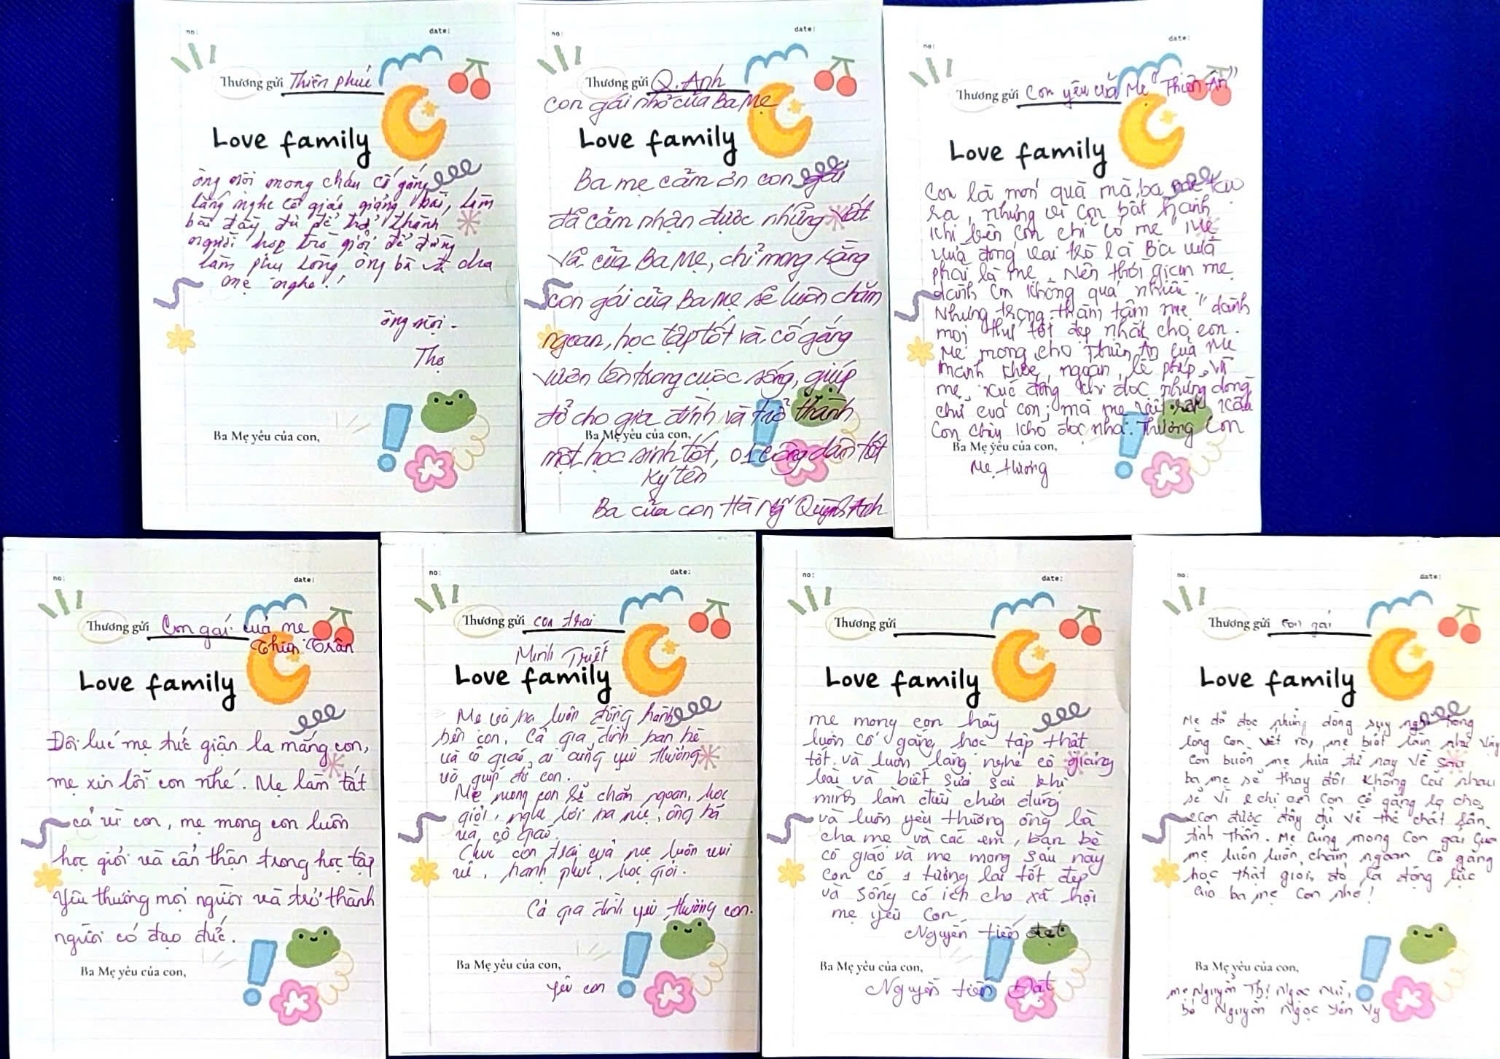 no:
date:
Thương gửi Thiên phúc
Love family
ông nội mong cháu cố gắng
lắng nghe cô giáo giảng bài, làm
bài đầy đủ để trở thành
người học trò giỏi để đừng
làm phụ lòng, ông bà và cha
mẹ nghe!
ông nội.
Thọ
Ba Mẹ yêu của con,
no:
date:
Thương gửi Q. Anh
con gái nhỏ của Ba Mẹ
Love family
Ba mẹ cảm ơn con gái
đã cảm nhận được những vất
vả của Ba Mẹ, chỉ mong rằng
con gái của Ba Mẹ sẽ luôn chăm
ngoan, học tập tốt và cố gắng
vươn lên trong cuộc sống, giúp
đỡ cho gia đình và trở thành
Ba Mẹ yêu của con,
một học sinh tốt, 01 công dân tốt
Ký tên
Ba của con Hà Ngĩ Quỳnh Anh
no:
date:
Thương gửi Con yêu của Mẹ "Thiên Ân"
Love family
Con là món quà mà ba mẹ tạo
ra, nhưng vì con bất hạnh
khi bên con chỉ có mẹ. Mẹ
vừa đóng vai trò là Ba vừa
phải là mẹ, Nên thời gian mẹ
dành con không quá nhiều.
Nhưng trong thâm tâm mẹ dành
mọi thứ tốt đẹp nhất cho con.
Mẹ mong cho Thiên Ân của Mẹ
mạnh khỏe, ngoan, lễ phép, và
mẹ xúc động khi đọc những dòng
chữ của con, mà mẹ
con chịu khó đọc nha. Thương con
Ba Mẹ yêu của con,
Mẹ thương
no:
date:
Thương gửi Con gái của mẹ
Trân
Love family
Đôi lúc mẹ tức giận la mắng con,
mẹ xin lỗi con nhé. Mẹ làm tất
cả vì con, mẹ mong con luôn
học giỏi và cẩn thận trong học tập
Yêu thương mọi người và trở thành
người có đạo đức.
Ba Mẹ yêu của con,
no:
date:
Thương gửi con trai
Minh Triết
Love family
Mẹ và ba luôn đồng hành
bên con. Cả gia đình bạn bè
và cô giáo, ai cũng yêu thương
và giúp đỡ con.
Mẹ mong con sẽ chăm ngoan, học
giỏi, nghe lời ba mẹ, ông bà
và, cô giáo.
Chúc con trai của mẹ luôn vui
vẻ, hạnh phúc, học giỏi.
Cả gia đình yêu thương con.
Ba Mẹ yêu của con,
Yêu con
no:
date:
Thương gửi
Love family
mẹ mong con hãy
luôn cố gắng, học tập thật
tốt và luôn lắng nghe cô giảng
bài và biết sửa sai khi
mình làm điều chưa đúng
và luôn yêu thương ông bà
cha mẹ và các em, bạn bè
cô giáo và mẹ mong sau này
con có 1 tương lai tốt đẹp
và sống có ích cho xã hội
mẹ yêu con
Nguyễn tiến đạt
Ba Mẹ yêu của con,
Nguyễn tiến Đạt
no:
date:
Thương gửi con gái
Love family
Mẹ đã đọc những dòng suy nghĩ trong
lòng con viết ra, mẹ biết làm như vậy
con buồn mẹ hứa từ nay về sau
ba mẹ sẽ thay đổi không cãi nhau
sẽ vì chị em con cố gắng lo cho
con được đầy đủ về thể chất lẫn
tinh thần. Mẹ cũng mong con gái của
mẹ luôn luôn chăm ngoan cố gắng
học thật giỏi, đó là động lực
cho ba mẹ con nhé!
Ba Mẹ yêu của con,
mẹ Nguyễn Thị Ngọc Nữ,
bé Nguyễn Ngọc Yến Vy